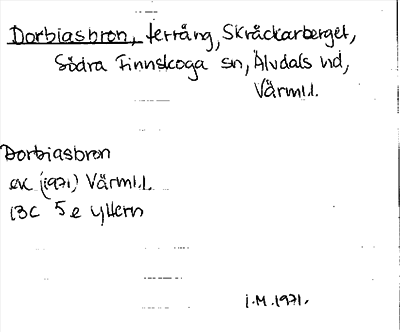 Dorbiasbron, terräng, Skråckarberget,
Södra Finnskoga sn, Älvdals hd,
Värml.
Dorbiasbron
ek (1971) Värml.
13C 5e Yttern
I.M. 1971.